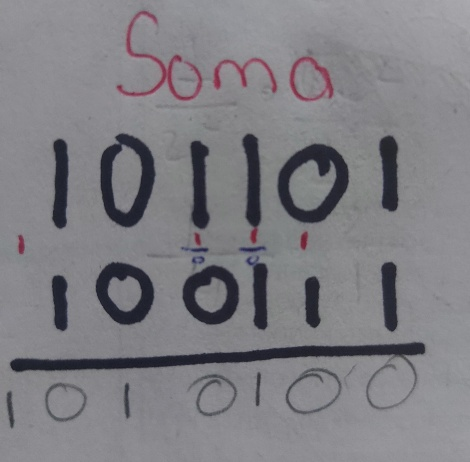 Soma
101101
1 1 1 1
0 0
100111
1010100